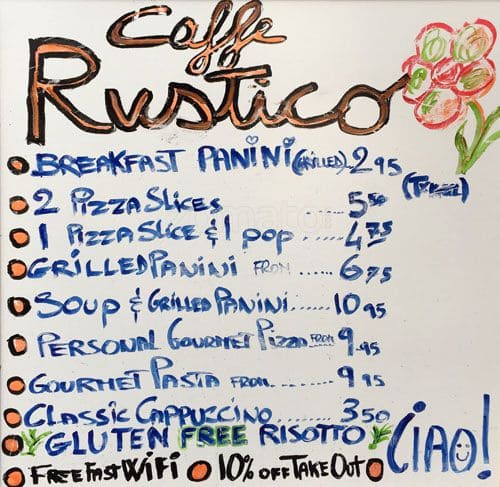 Caffe
Rustico
BREAKFAST PANINI (GRILLED) 2 95
2 PIZZA SLICES ..... 5 50
1 PIZZA SLICE & 1 POP ..... 4 75
GRILLED PANINI FROM ...... 6 75
SOUP & GRILLED PANINI ...... 10 95
PERSONAL GOURMET PIZZA FROM 9 .95
GOURMET PASTA FROM ........ 9 95
CLASSIC CAPPUCCINO ....... 3 50
GLUTEN FREE RISOTTO
CIAO!
FREE FAST WIFI 10% OFF TAKE OUT